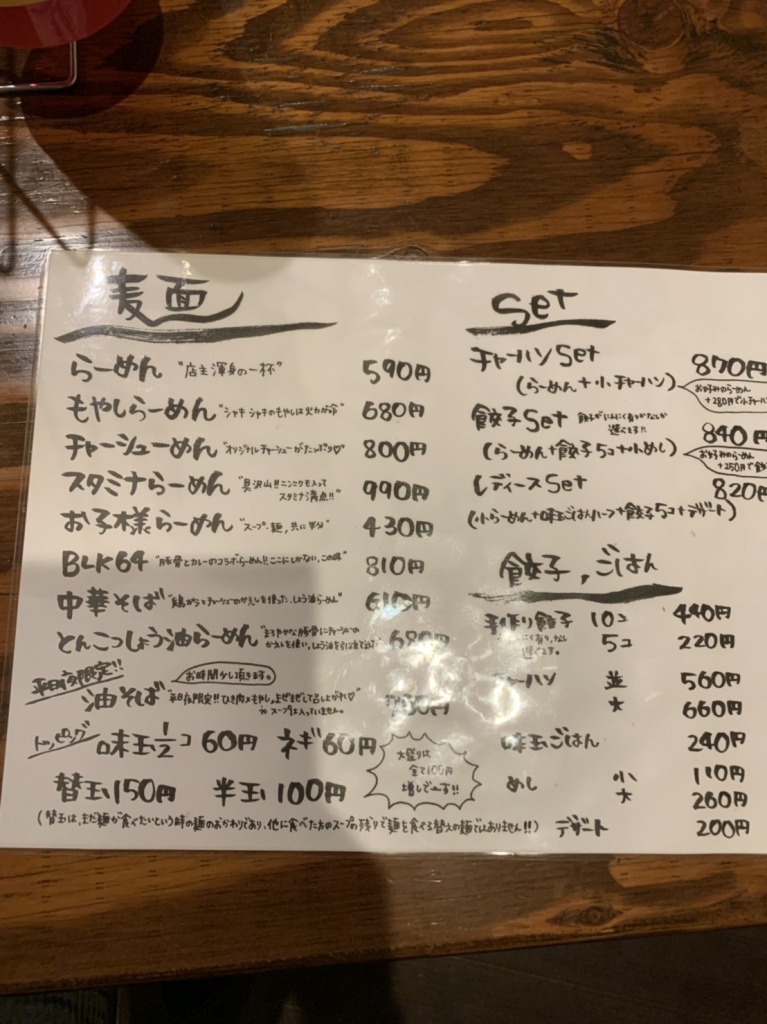 麦面
らーめん "店主渾身の一杯" 590円
もやしらーめん "シャキシャキのもやしは火力が命" 680円
チャーシューめん "オリジナルチャーシューがたっぷり♡" 800円
スタミナらーめん "具沢山!!ニンニクも入って
スタミナ満点!!" 990円
お子様らーめん "スープ、麺、共に半分" 430円
BLK64 "豚骨とカレーのコラボらーめん!!ここにしかない、この味" 810円
中華そば "鶏ガラとチャーシューのかえしを使った、しょう油らーめん"
とんこつしょう油らーめん "まろやかな豚骨に
かえしを使い、しょう油を 680円
平日夜限定!! お時間少し頂きます。
油そば 平日夜限定!!ひき肉メもやし。よぜまぜして召し上がれ♡
※スープは入っていません。
トッピング 味玉1/2コ 60円 ネギ 60円
大盛りは
全て100円
増しでーす!!
替玉 150円 半玉 100円
(替玉は、まだ麺が食べたいという時の麺のおかわりであり、他に食べた方のスープの残りで麺を食べる替えの麺ではありません!!)
Set
チャーハンSet 870円
(らーめん+小チャーハン) お好みのらーめん
+280円で小チャーハン
餃子Set 餃子がにんにく有りかなしか
選べます!! 840円
(らーめん+餃子5コ+小めし) お好みのらーめん
+250円で
レディースSet 820円
(小らーめん+味玉ごはんハーフ+餃子5コ+デザート)
餃子,ごはん
手作り餃子 10コ 440円
にく有り,なし
選べます。 5コ 220円
チャーハン 並 560円
大 660円
味玉ごはん 240円
めし 小 110円
大 260円
デザート 200円